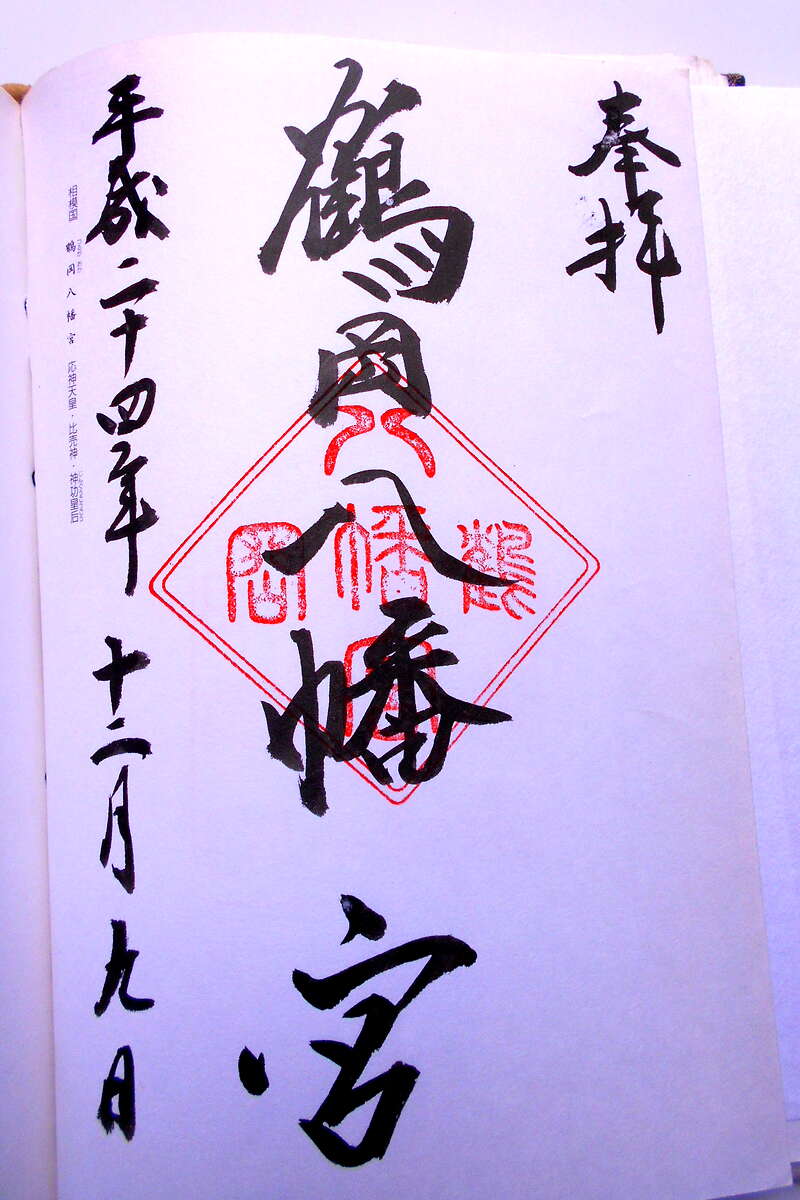 奉拝
鶴岡八幡宮
八
鶴幡岡
宮
平成二十四年 十二月九日
相模国 鶴岡八幡宮 応神天皇・比売神・神功皇后